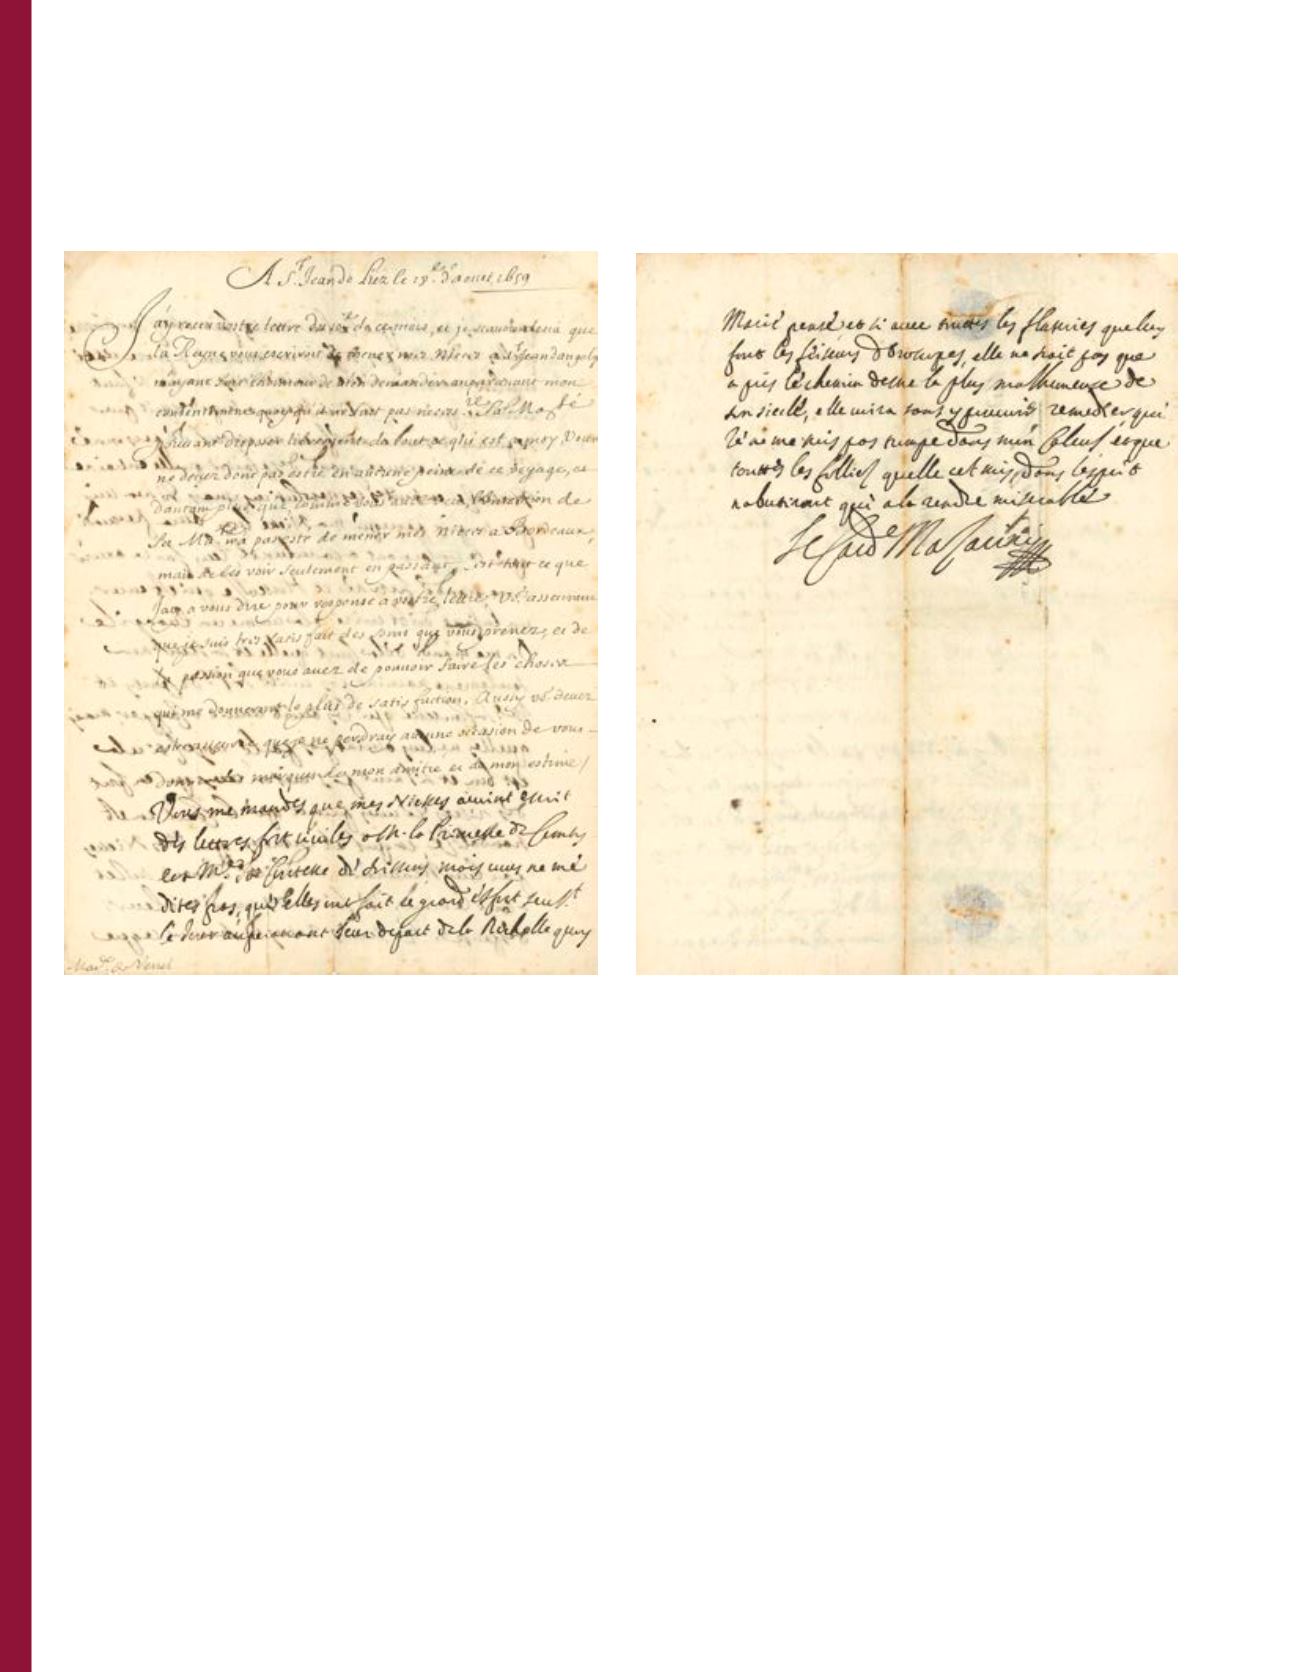 A S.t Jean de Luz le 18.e d'aoust 1659
J'ay receu vostre lettre du de ce mois, et je que
la Reyne vous escrivit de mener mes Nieces a S.t Jean d'angely
ayant fait l'honneur de m'en demander auparavant mon
consentement quoyqu'il ne fust pas Sa Ma.té
pouvant disposer librement de tout ce qui est a moy, Vous
ne devez donc pas estre en aucune peine de ce voyage, et
d'autant plus que, comme vous l'intention de
Sa Ma.té n'a pas esté de mener mes Nieces a Bordeaux,
mais de les voir seulement en passant, C'est tout ce que
J'ay a vous dire pour response a vostre lettre, vo.s asseurant
que je suis tres satisfait des soins que vous prenez, et de
la passion que vous avez de pouvoir faire les choses
qui me donneront le plus de satisfaction, Aussy vo.s devez
que je ne perdray aucune occasion de vous
donner des marques de mon amitié et de mon estime /
Vous me mandes que mes Nieces avoint escrit
des lettres fort civiles a M. la Princesse de Conty
et a Mad. la Contesse de Soissons mais vous ne me
dites pas, qu'Elles ont fait le grand effort
de leur depart de la Rochelle
Mad.e de Venel
Marie pense et si avec touttes les flateries que luy
font les feseurs d'oroscopes, elle ne croit pas que
a pris le chemin destre la plus malhureuse de
son siecle, elle sans y pouvoir remedier
Je ne me suis pas trompe dans mon et que
touttes les follies quelle cet mis dans l'esprit
n'abutiront qu'a la rendre miserable
Le Card.e Mazarini